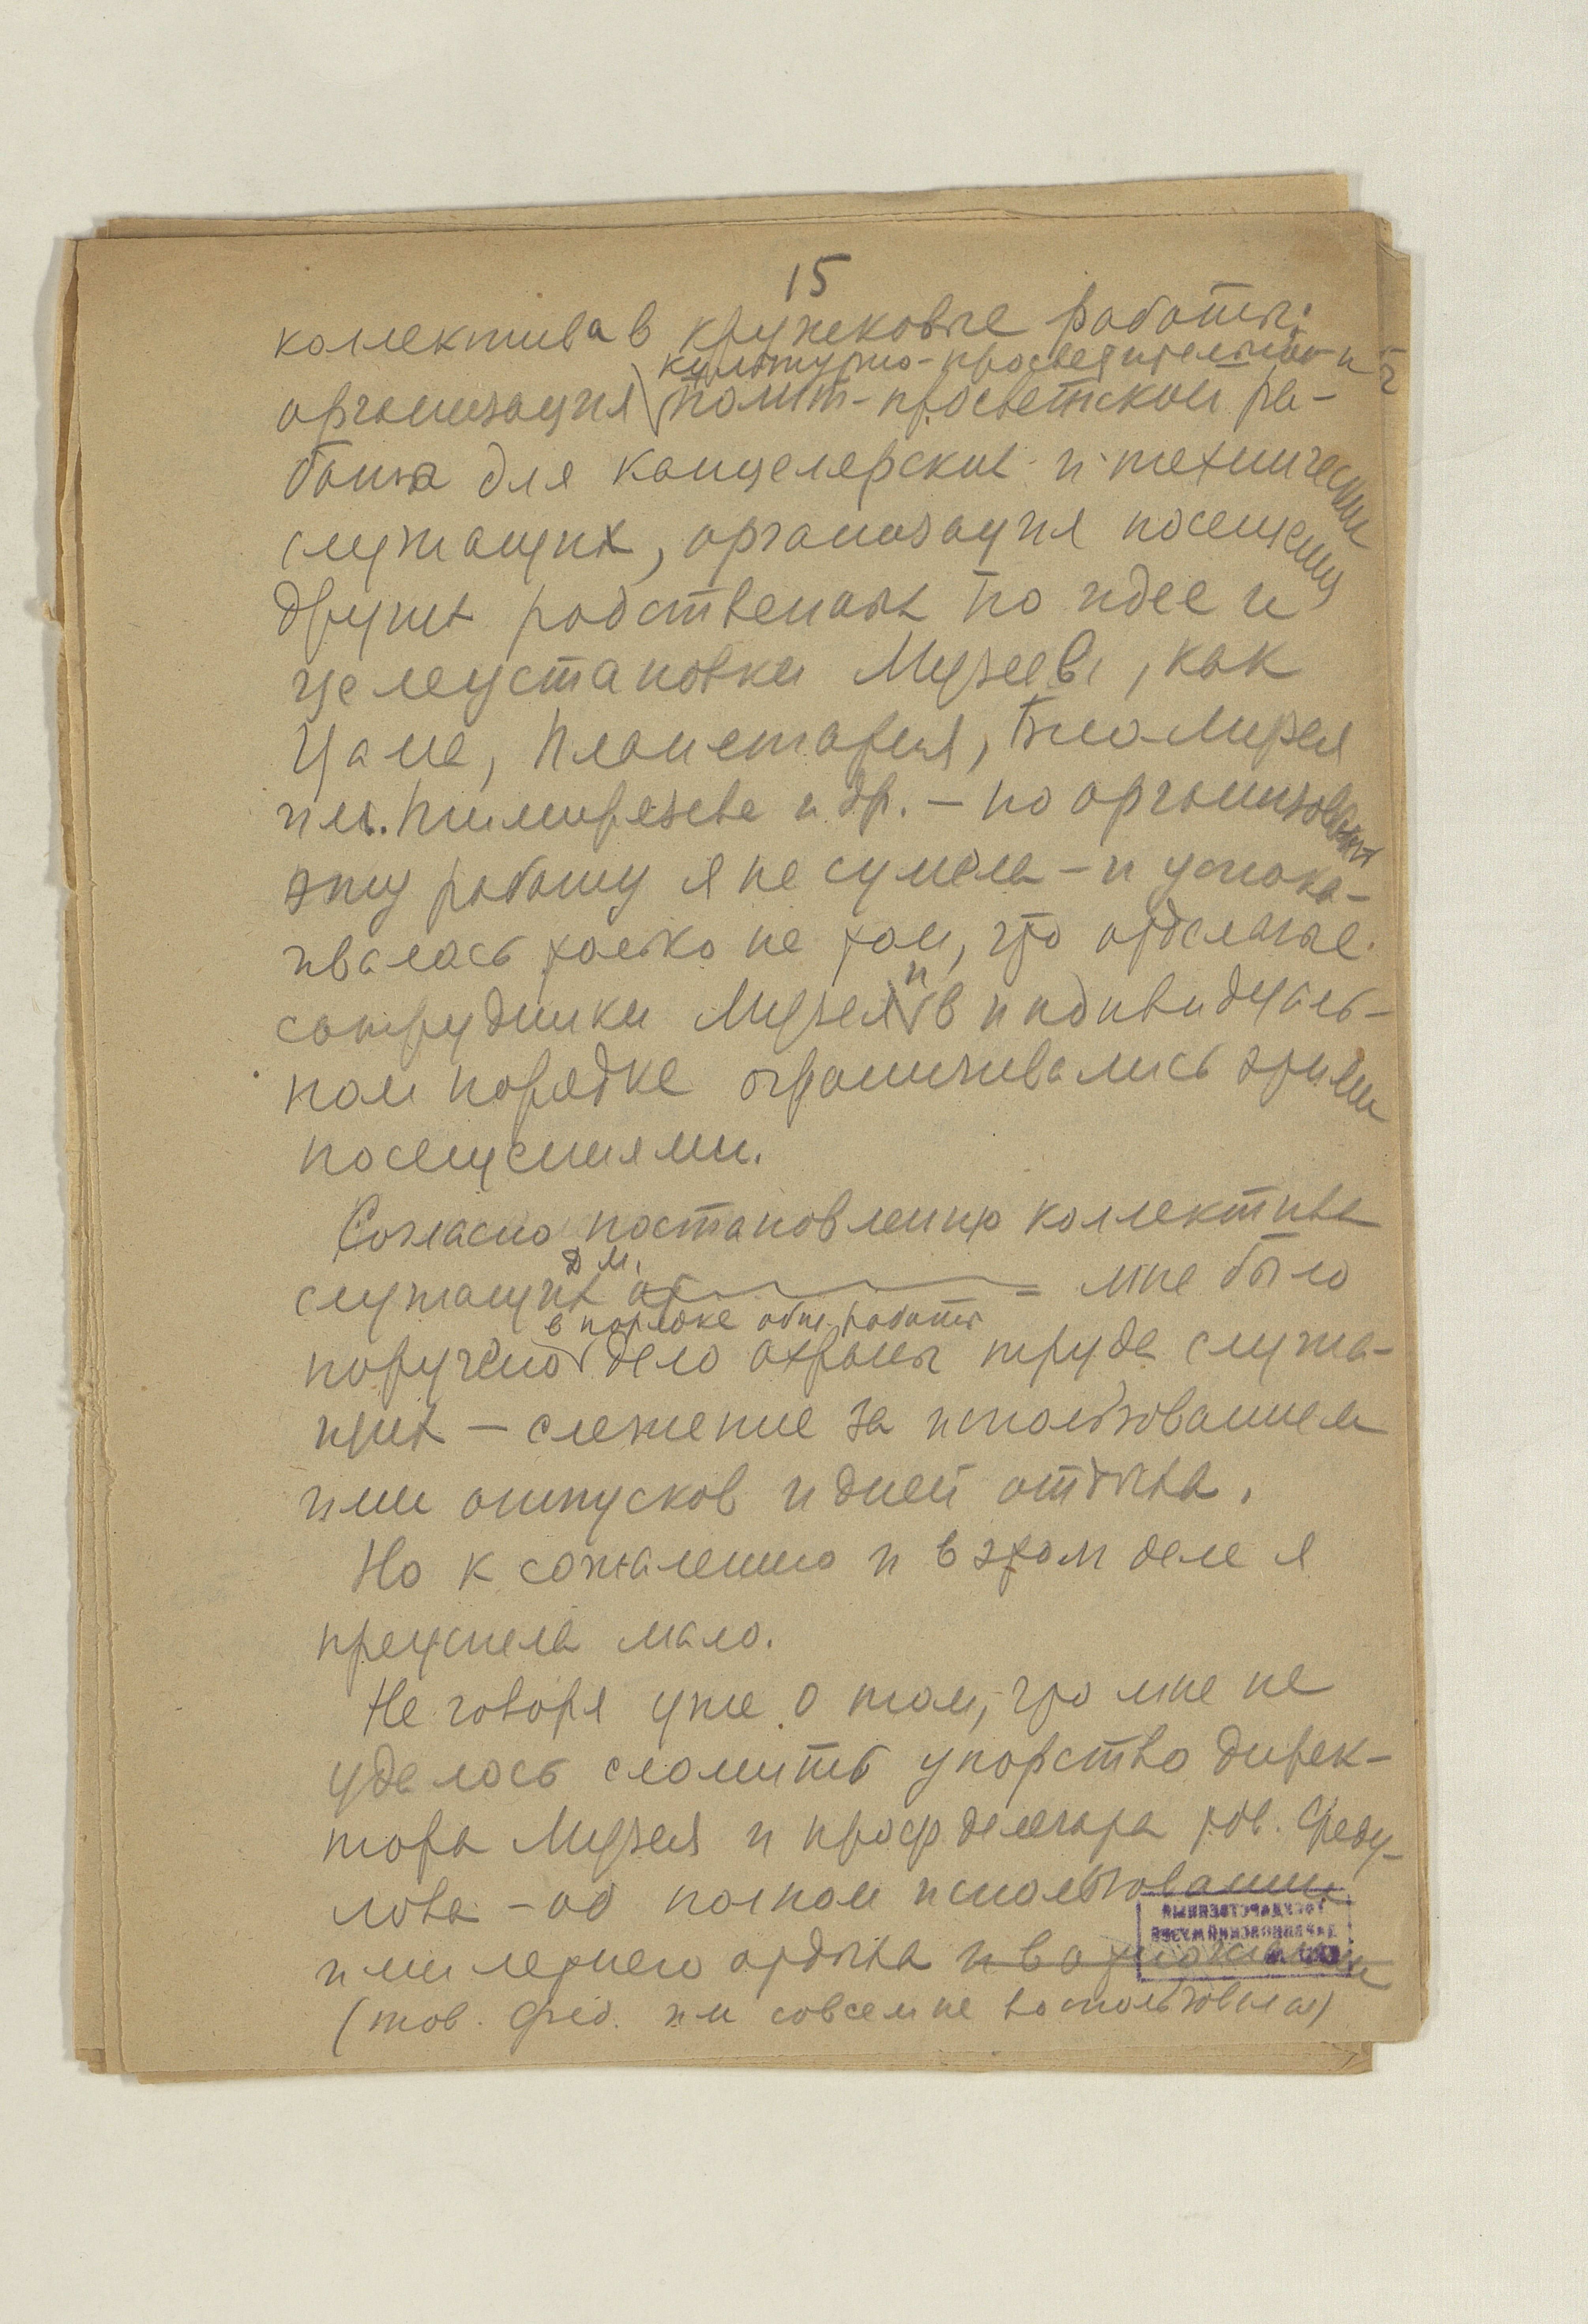 15
коллектива в кружковые работы:
культурно-просветительной и
организация полит-просветской ра-
боты для канцелярских и технических
служащих, организация посещения
других родственных по идее и
целеустановки Музеев, как
Цаге, Планетария, БиоМузея
им. Тимирязева и др. – но организовать
эту работу я не сумела – и успока-
ивалась только на том, что отдельные
сотрудники Музея и в индивидуаль-
ном порядке ограничивались этими
посещениями.
Согласно постановлению коллектива
Д М.
служащих = мне было
в порядке общ. работы
поручено дело охраны труда служа-
щих – слежение за использованием
ими отпусков и дней отдыха.
Но к сожалению и в этом деле я
преуспела мало.
Не говоря уже о том, что мне не
удалось сломить упорство дирек-
тора Музея и проф. тов. Феду-
лова – об полном использовании
ими летнего отдыха и в
(тов. Фед. им совсем не воспользовался)